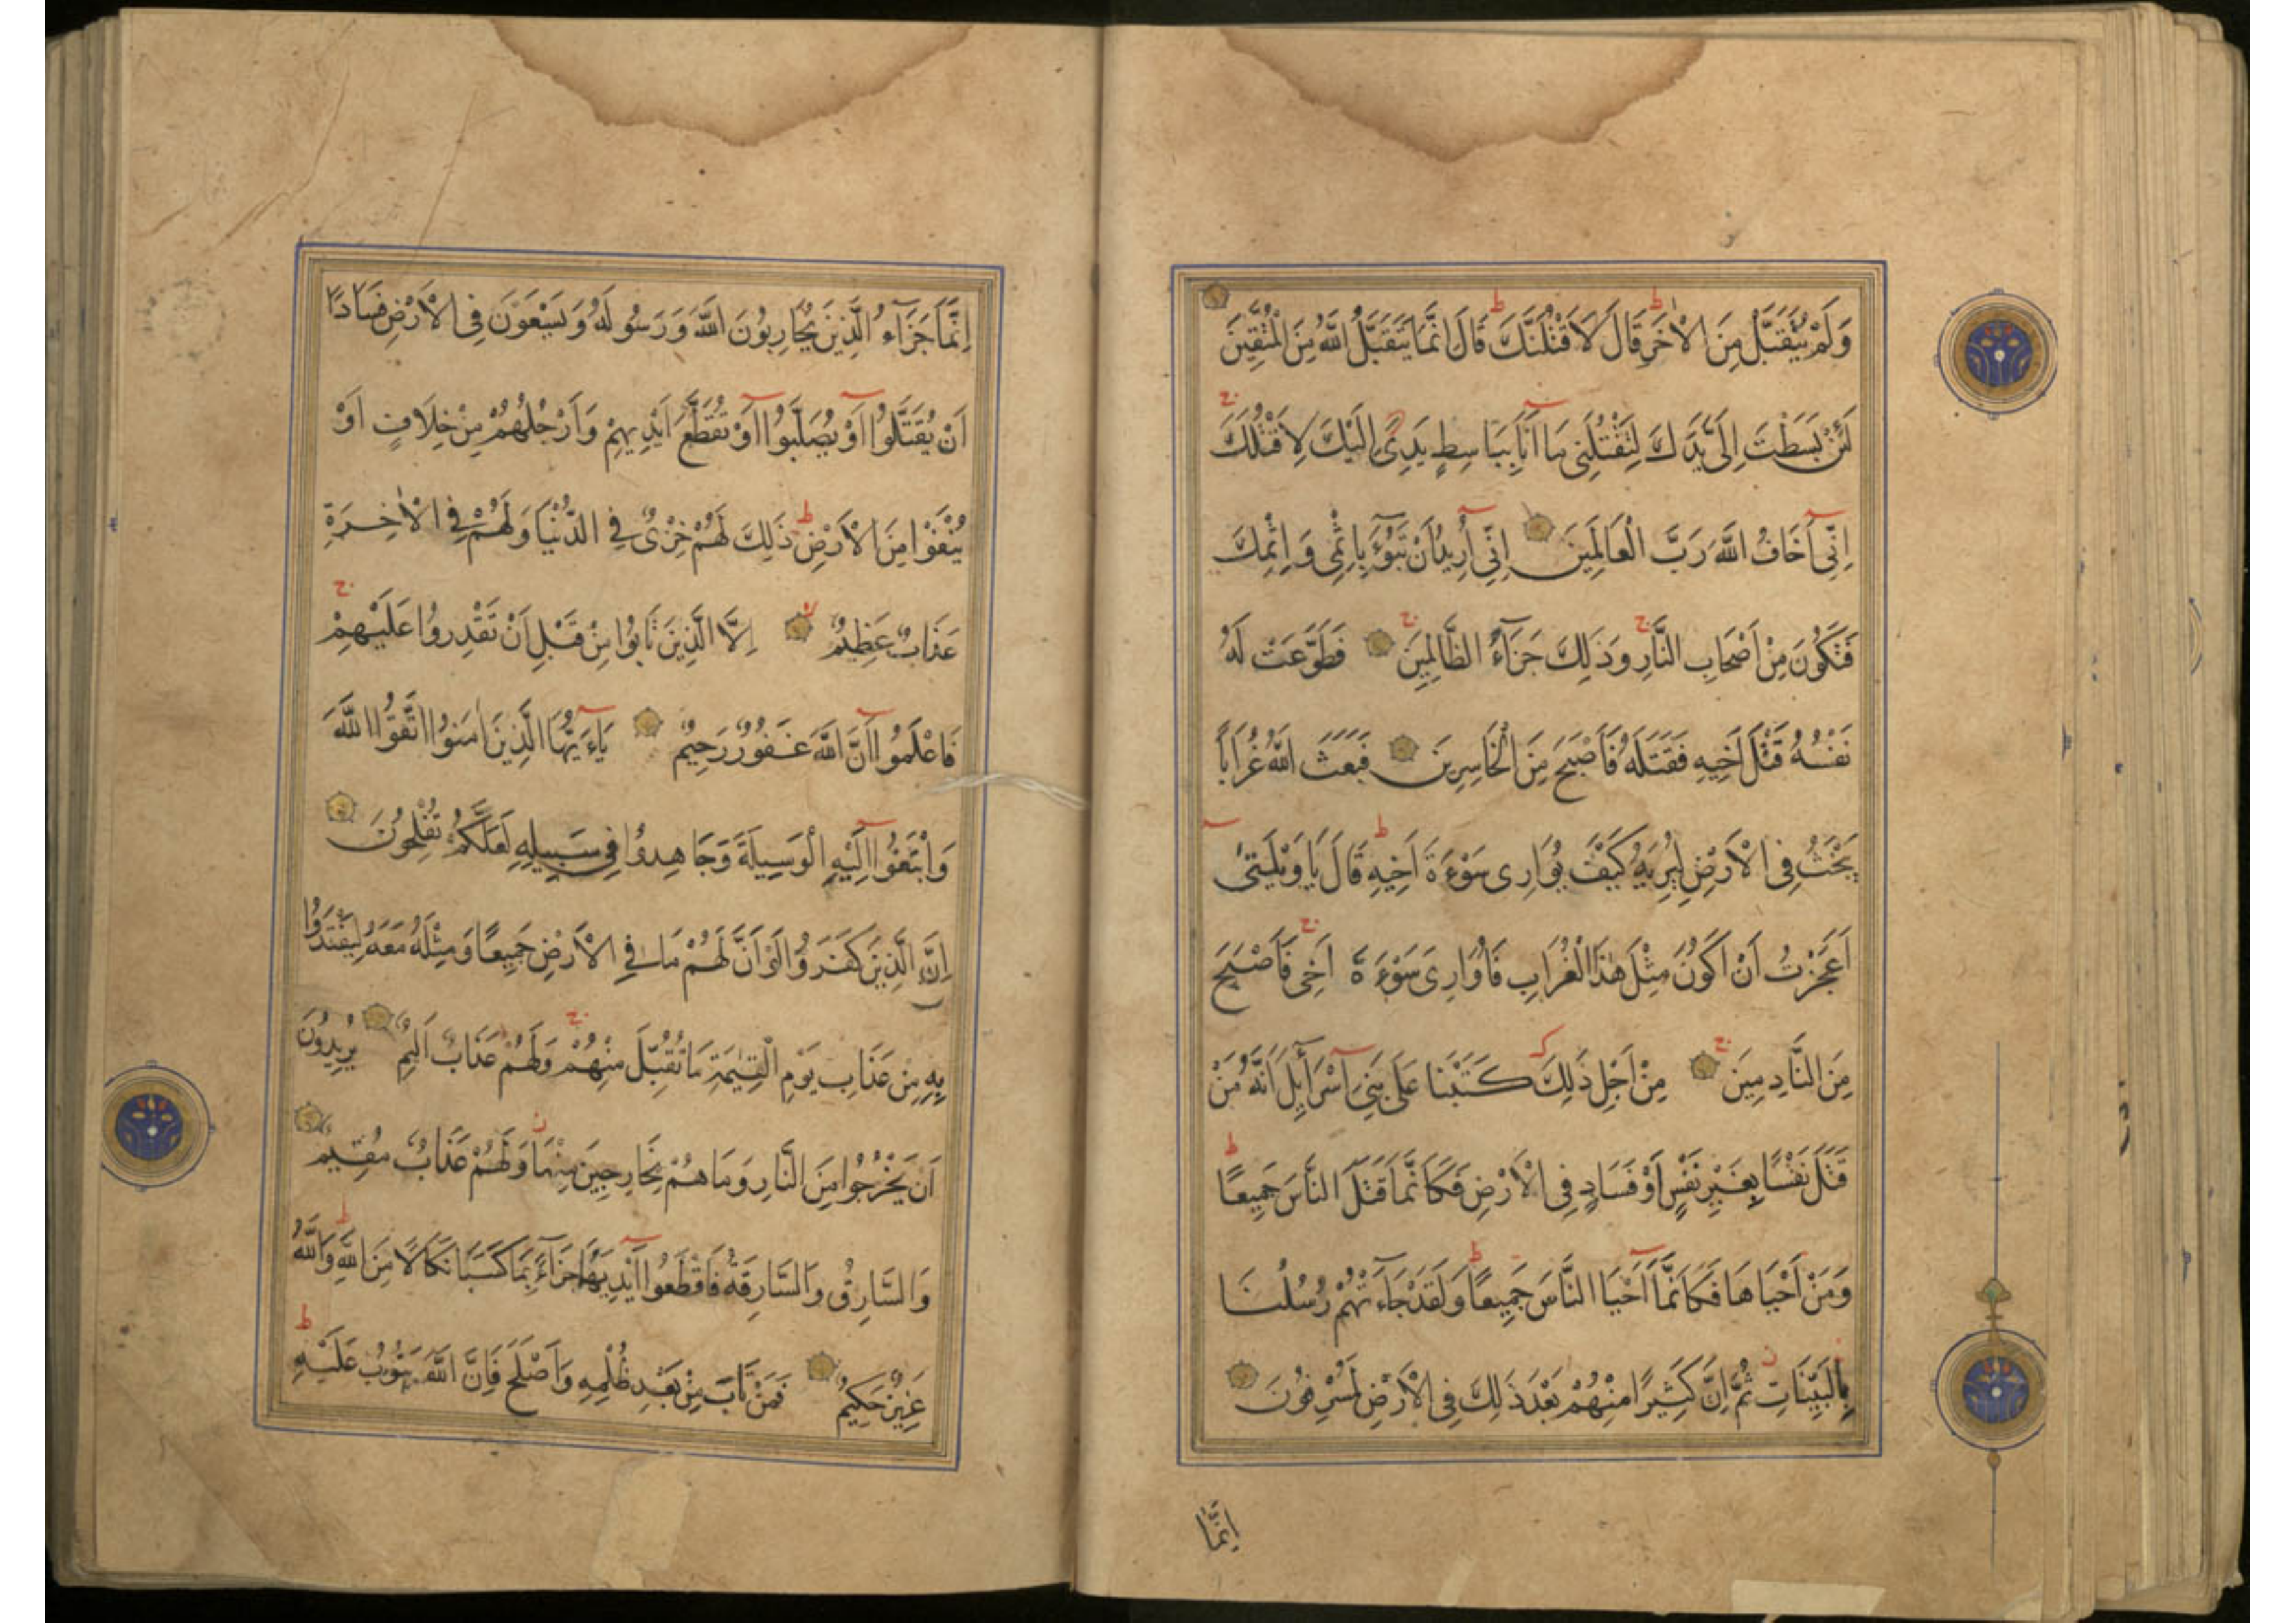 وَلَمْ يُتَقَبَّلْ مِنَ الْاٰخَرِ قَالَ لَاَقْتُلَنَّكَ قَالَ اِنَّمَا يَتَقَبَّلُ اللَّهُ مِنَ الْمُتَّقِينَ
لَئِنْ بَسَطْتَ اِلَىَّ يَدَكَ لِتَقْتُلَنِى مَا اَنَا بِبَاسِطٍ يَدِىَ اِلَيْكَ لِاَقْتُلَكَ
اِنِّى اَخَافُ اللَّهَ رَبَّ الْعَالَمِينَ اِنِّى اُرِيدُ اَنْ تَبُوٓءَ بِاِثْمِى وَاِثْمِكَ
فَتَكُونَ مِنْ اَصْحَابِ النَّارِ وَذَلِكَ جَزَآءُ الظَّالِمِينَ فَطَوَّعَتْ لَهُ
نَفْسُهُ قَتْلَ اَخِيهِ فَقَتَلَهُ فَاَصْبَحَ مِنَ الْخَاسِرِينَ فَبَعَثَ اللَّهُ غُرَابًا
يَبْحَثُ فِى الْاَرْضِ لِيُرِيَهُ كَيْفَ يُوَارِى سَوْءَةَ اَخِيهِ قَالَ يَا وَيْلَتىٰ
اَعَجَزْتُ اَنْ اَكُونَ مِثْلَ هٰذَا الْغُرَابِ فَاُوَارِىَ سَوْءَةَ اَخِى فَاَصْبَحَ
مِنَ النَّادِمِينَ مِنْ اَجْلِ ذَلِكَ كَتَبْنَا عَلَى بَنِى اِسْرَآئِلَ اَنَّهُ مَنْ
قَتَلَ نَفْسًا بِغَيْرِ نَفْسٍ اَوْ فَسَادٍ فِى الْاَرْضِ فَكَاَنَّمَا قَتَلَ النَّاسَ جَمِيعًا
وَمَنْ اَحْيَاهَا فَكَاَنَّمَا اَحْيَا النَّاسَ جَمِيعًا وَلَقَدْ جَآءَتْهُمْ رُسُلُنَا
بِالْبَيِّنَاتِ ثُمَّ اِنَّ كَثِيرًا مِنْهُمْ بَعْدَ ذَلِكَ فِى الْاَرْضِ لَمُسْرِفُونَ
اِنَّمَا
اِنَّمَا جَزَآءُ الَّذِينَ يُحَارِبُونَ اللَّهَ وَرَسُولَهُ وَيَسْعَوْنَ فِى الْاَرْضِ فَسَادًا
اَنْ يُقَتَّلُوا اَوْ يُصَلَّبُوا اَوْ تُقَطَّعَ اَيْدِيهِمْ وَاَرْجُلُهُمْ مِنْ خِلَافٍ اَوْ
يُنْفَوْا مِنَ الْاَرْضِ ذَلِكَ لَهُمْ خِزْىٌ فِى الدُّنْيَا وَلَهُمْ فِى الْاٰخِرَةِ
عَذَابٌ عَظِيمٌ اِلَّا الَّذِينَ تَابُوا مِنْ قَبْلِ اَنْ تَقْدِرُوا عَلَيْهِمْ
فَاعْلَمُوا اَنَّ اللَّهَ غَفُورٌ رَحِيمٌ يَاءَيُّهَا الَّذِينَ اٰمَنُوا اتَّقُوا اللَّهَ
وَابْتَغُوا اِلَيْهِ الْوَسِيلَةَ وَجَاهِدُوا فِى سَبِيلِهِ لَعَلَّكُمْ تُفْلِحُونَ
اِنَّ الَّذِينَ كَفَرُوا لَوْ اَنَّ لَهُمْ مَا فِى الْاَرْضِ جَمِيعًا وَمِثْلَهُ مَعَهُ لِيَفْتَدُوا
بِهِ مِنْ عَذَابِ يَوْمِ الْقِيٰمَةِ مَا تُقُبِّلَ مِنْهُمْ وَلَهُمْ عَذَابٌ اَلِيمٌ يُرِيدُونَ
اَنْ يَخْرُجُوا مِنَ النَّارِ وَمَا هُمْ بِخَارِجِينَ مِنْهَا وَلَهُمْ عَذَابٌ مُقِيمٌ
وَالسَّارِقُ وَالسَّارِقَةُ فَاقْطَعُوا اَيْدِيَهُمَا جَزَآءً بِمَا كَسَبَا نَكَالًا مِنَ اللَّهِ وَاللَّهُ
عَزِيزٌ حَكِيمٌ فَمَنْ تَابَ مِنْ بَعْدِ ظُلْمِهِ وَاَصْلَحَ فَاِنَّ اللَّهَ يَتُوبُ عَلَيْهِ